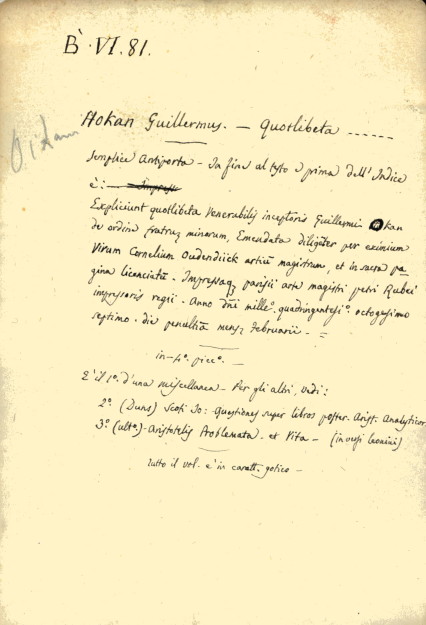 B. VI. 81.
Hokan Guillermus. — Quotlibeta ------
Semplice Antiporta — In fine al testo e prima dell'Indice
è: —
Expliciunt quotlibeta Venerabilis inceptoris Guillermi Okan
de ordine fratrum minorum, Emendata diligẽter per eximium
Virum Cornelium Oudendiick artiũ magistrum, et in sacra pa-
gina licenciatũ. Impressaqz parisii arte magistri petri Rubei
impressoris regii. Anno dñi mille°. quadringentesi°. octogesimo
septimo. die penultiã mensz Februarii. =
in-4°. picc°. —
E' il 1°. d'una miscellanea. — Per gli altri, vedi:
2°. (Duns) Scoti Jo: Questiones super libros poster. Arist. Analyticor
3°. (ulto.) - Aristotelis Problemata. et Vita — (in versi leonini)
Tutto il vol. è in caratt. gotico —